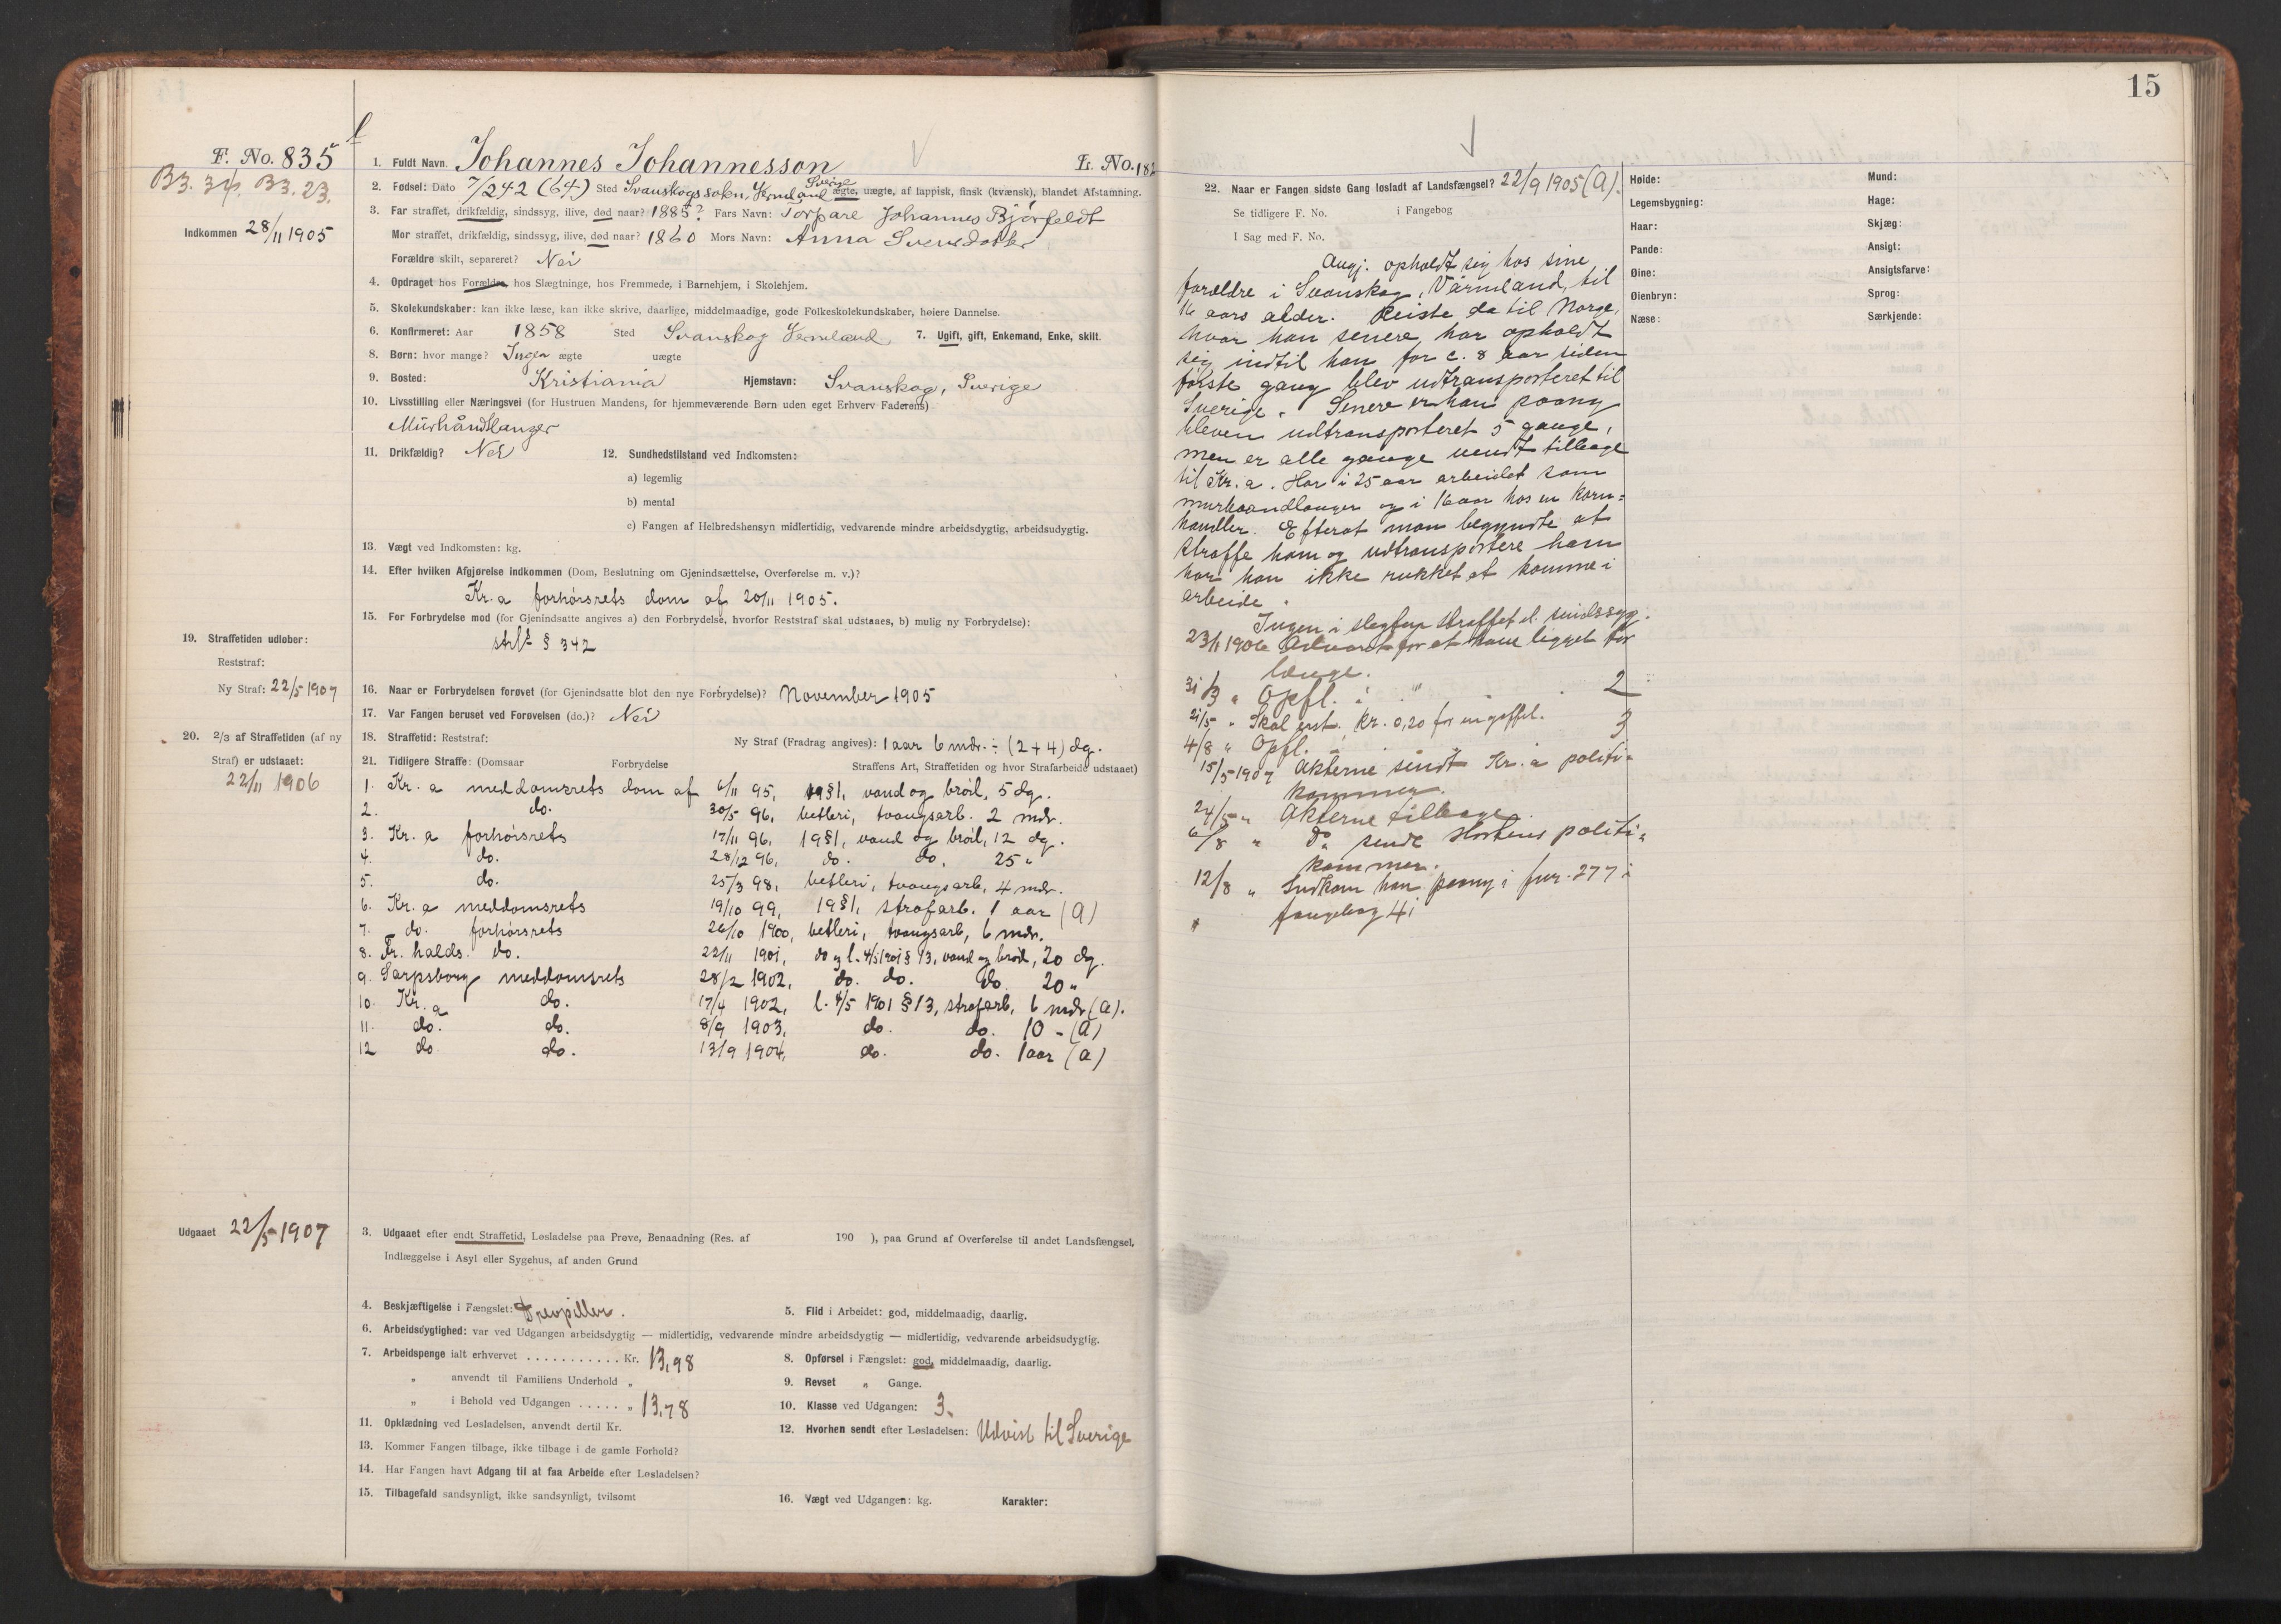 F. No. 835
B3. 34. B3. 23.
Indkommen 28/11 1905
1. Fuldt Navn. Johannes Johannesson L. No. 182
2. Fødsel: Dato 7/2 42 (64) Sted Svanskogs sokn, Vermland Sverige ægte, uægte, af lappisk, finsk (kvænsk), blandet Afstamning.
3. Far straffet, drikfældig, sindssyg, ilive, død naar? 1885? Fars Navn: Torpare Johannes Bjørfeldt
Mor straffet, drikfældig, sindssyg, ilive, død naar? 1860 Mors Navn: Anna Svensdotter
Forældre skilt, separeret? Nei
4. Opdraget hos Forældre, hos Slægtninge, hos Fremmede, i Barnehjem, i Skolehjem.
5. Skolekundskaber: kan ikke læse, kan ikke skrive, daarlige, middelmaadige, gode Folkeskolekundskaber, høiere Dannelse.
6. Konfirmeret: Aar 1858 Sted Svanskog Vermland 7. Ugift, gift, Enkemand, Enke, skilt.
8. Børn: hvor mange? Ingen ægte uægte
9. Bosted: Kristiania Hjemstavn: Svanskog, Sverige
10. Livsstilling eller Næringsvei (for Hustruen Mandens, for hjemmeværende Børn uden eget Erhverv Faderens)
Murhåndlanger
11. Drikfældig? Nei 12. Sundhedstilstand ved Indkomsten:
a) legemlig
b) mental
c) Fangen af Helbredshensyn midlertidig, vedvarende mindre arbeidsdygtig, arbeidsudygtig.
13. Vægt ved Indkomsten: kg.
14. Efter hvilken Afgjørelse indkommen (Dom, Beslutning om Gjenindsættelse, Overførelse m. v.)?
Kr.a forhørsrets dom af 20/11 1905.
15. For Forbrydelse mod (for Gjenindsatte angives a) den Forbrydelse, hvorfor Reststraf skal udstaaes, b) mulig ny Forbrydelse):
strfl § 342
19. Straffetiden udløber:
Reststraf:
Ny Straf: 22/5 1907
16. Naar er Forbrydelsen forøvet (for Gjenindsatte blot den nye Forbrydelse)? November 1905
17. Var Fangen beruset ved Forøvelsen (do.)? Nei
20. 2/3 af Straffetiden (af ny
Straf) er udstaaet:
22/11 1906
18. Straffetid: Reststraf: Ny Straf (Fradrag angives): 1 aar 6 mdr. ÷ (2+4) dg.
21. Tidligere Straffe: (Domsaar Forbrydelse Straffens Art, Straffetiden og hvor Strafarbeide udstaaet)
1. Kr.a meddomsrets dom af 6/11 95, 19§1, vand og brød, 5 dg.
2. do. 30/5 96, betleri, tvangsarb. 2 mdr.
3. Kr.a forhørsrets 17/11 96, 19§1, vand og brød, 12 dg.
4. do. 28/12 96, do. do. 25 "
5. do. 25/3 98, betleri, tvangsarb, 4 mdr.
6. Kr.a meddomsrets 19/10 99, 19§1, strafarb. 1 aar (A)
7. do. forhørsrets 26/10 1900, betleri, tvangsarb, 6 mdr.
8. Fr. halds. do. 22/11 1901, do og l. 4/5 1901 § 13, vand og brød, 20 dg.
9. Sarpsborg meddomsrets 28/2 1902, do. do. do 20 "
10. Kr.a do. 17/4 1902, l. 4/5 1901 § 13, strafarb, 6 mdr (A).
11. do. do. 8/9 1903, do. do. 10 - (A)
12 do. do. 13/9 1904, do. do. 1 aar (A)
Udgaaet 22/5 1907
3. Udgaaet efter endt Straffetid, Løsladelse paa Prøve, Benaadning (Res. af 190 ), paa Grund af Overførelse til andet Landsfængsel,
Indlæggelse i Asyl eller Sygehus, af anden Grund
4. Beskjæftigelse i Fængslet: Drevpiller. 5. Flid i Arbeidet: god, middelmaadig, daarlig.
6. Arbeidsdygtighed: var ved Udgangen arbeidsdygtig — midlertidig, vedvarende mindre arbeidsdygtig — midlertidig, vedvarende arbeidsudygtig.
7. Arbeidspenge ialt erhvervet . . . . . . . . . . . Kr. 13,98 8. Opførsel i Fængslet: god, middelmaadig, daarlig.
" anvendt til Familiens Underhold " 9. Revset " Gange.
" i Behold ved Udgangen . . . . . " 13,78 10. Klasse ved Udgangen: 3.
11. Opklædning ved Løsladelsen, anvendt dertil Kr. 12. Hvorhen sendt efter Løsladelsen: Udvist til Sverige
13. Kommer Fangen tilbage, ikke tilbage i de gamle Forhold?
14. Har Fangen havt Adgang til at faa Arbeide efter Løsladelsen?
15. Tilbagefald sandsynligt, ikke sandsynligt, tvilsomt 16. Vægt ved Udgangen: kg. Karakter:
15
22. Naar er Fangen sidste Gang løsladt af Landsfængsel? 22/9 1905 (A).
Se tidligere F. No. i Fangebog
I Sag med F. No.
Høide: Mund:
Legemsbygning: Hage:
Haar: Skjæg:
Pande: Ansigt:
Øine: Ansigtsfarve:
Øienbryn: Sprog:
Næse: Særkjende:
Angj. opholdt sig hos sine
forældre i Svanskog, Värmland, til
16 aars alder. Reiste da til Norge,
hvor han senere har opholdt
sig indtil han for c. 8 aar siden
første gang blev udtransporteret til
Sverige. Senere er han paany
bleven udtransporteret 5 gange,
men er alle gange vendt tilbage
til Kr.a. Har i 25 aar arbeidet som
murhaandlanger og i 16 aar hos en korn-
handler. Efterat man begyndte at
straffe ham og udtransportere ham
har han ikke rukket at komme i
arbeide.
Ingen i slegten straffet el. sindssyg.
23/1 1906 Advaret for at have ligget for
længe.
31/3 " Opfl. 2
21/5 " Skal erst. kr. 0,20 for en gaffel.
4/8 " Opfl. 3
15/5 1907 Akterne sendt Kr.a politi-
kammer.
24/5 " Akterne tilbage.
6/8 " Do sendt Hortens politi-
kammer.
12/8 " Indkom han paany i fnr. 277 i
fangebog 4i